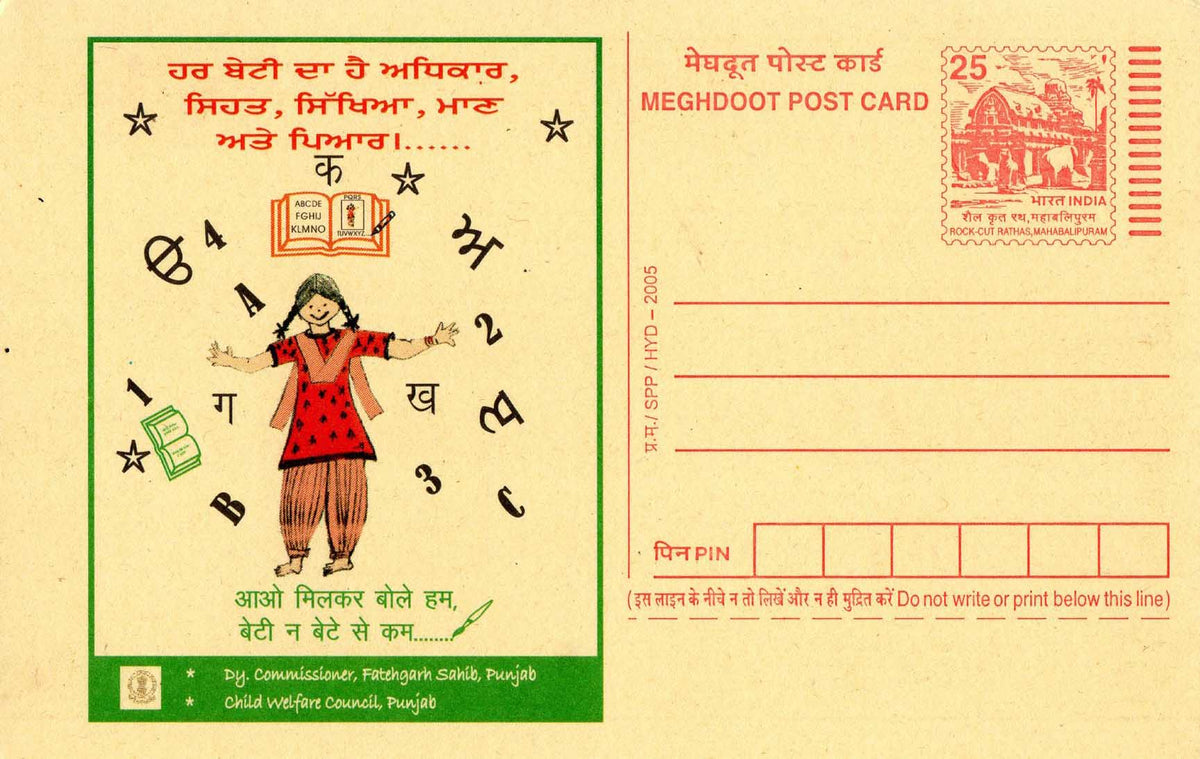 ਹਰ ਬੇਟੀ ਦਾ ਹੈ ਅਧਿਕਾਰ,
ਸਿਹਤ, ਸਿੱਖਿਆ, ਮਾਣ
ਅਤੇ ਪਿਆਰ।......
क
ABCDE
FGHIJ
KLMNO
PQRS
TUVWXYZ
ੳ
4
ਅ
A
2
1
ग
ख
ੲ
B
3
C
आओ मिलकर बोले हम,
बेटी न बेटे से कम........
* Dy. Commissioner, Fatehgarh Sahib, Punjab
* Child Welfare Council, Punjab
मेघदूत पोस्ट कार्ड
MEGHDOOT POST CARD
25
भारत INDIA
शैल कृत रथ, महाबलिपुरम
ROCK-CUT RATHAS, MAHABALIPURAM
प्र.म./ SPP / HYD – 2005
पिन PIN
(इस लाइन के नीचे न तो लिखें और न ही मुद्रित करें Do not write or print below this line)